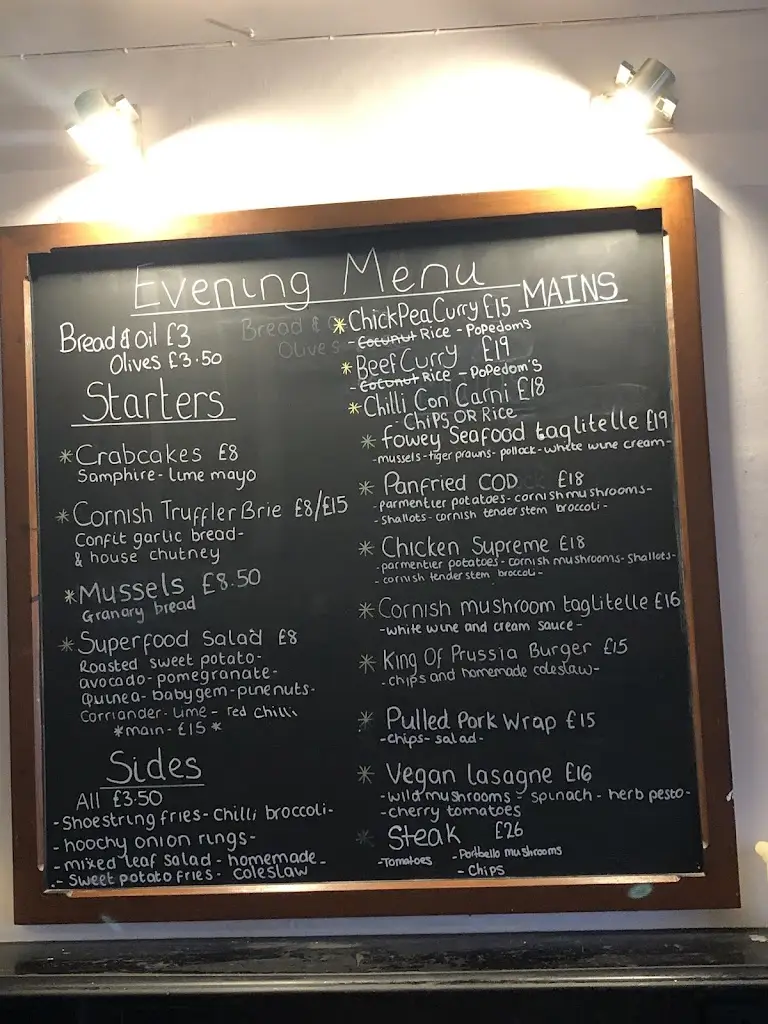 Evening Menu
Bread & Oil £3
Olives £3.50
Starters
*Crabcakes £8
Samphire - lime mayo
*Cornish Truffler Brie £8/£15
Confit garlic bread-
& house chutney
*Mussels £8.50
Granary bread
*Superfood Salad £8
Roasted sweet potato-
avocado-pomegranate-
Quinea-babygem-pinenuts-
Corriander-lime-red chilli
*main-£15*
Sides
All £3.50
-Shoestring fries-Chilli broccoli-
-hoochy onion rings-
-mixed leaf salad-homemade-
-Sweet potato fries- coleslaw
MAINS
*ChickPea Curry £15
-Cocunut Rice-Popedoms
*Beef Curry £19
-Cotunut Rice-PoPedom's
*Chilli Con Carni £18
-Chips OR Rice
*fowey Seafood taglitelle £19
-mussels-tiger prawns-pollock-white wine cream-
*Panfried COD £18
-parmentier potatoes-cornish mushrooms-
-shallots-cornish tenderstem broccoli-
*Chicken Supreme £18
-parmentier potatoes-cornish mushrooms-shallots-
-cornish tenderstem broccoli-
*Cornish mushroom taglitelle £16
-white wine and cream sauce-
*King Of Prussia Burger £15
-chips and homemade coleslaw-
*Pulled Pork Wrap £15
-chips-salad-
*Vegan lasagne £16
-wild mushrooms-spinach-herb pesto-
-cherry tomatoes
*Steak £26
-Tomatoes -Portbello mushrooms
-Chips